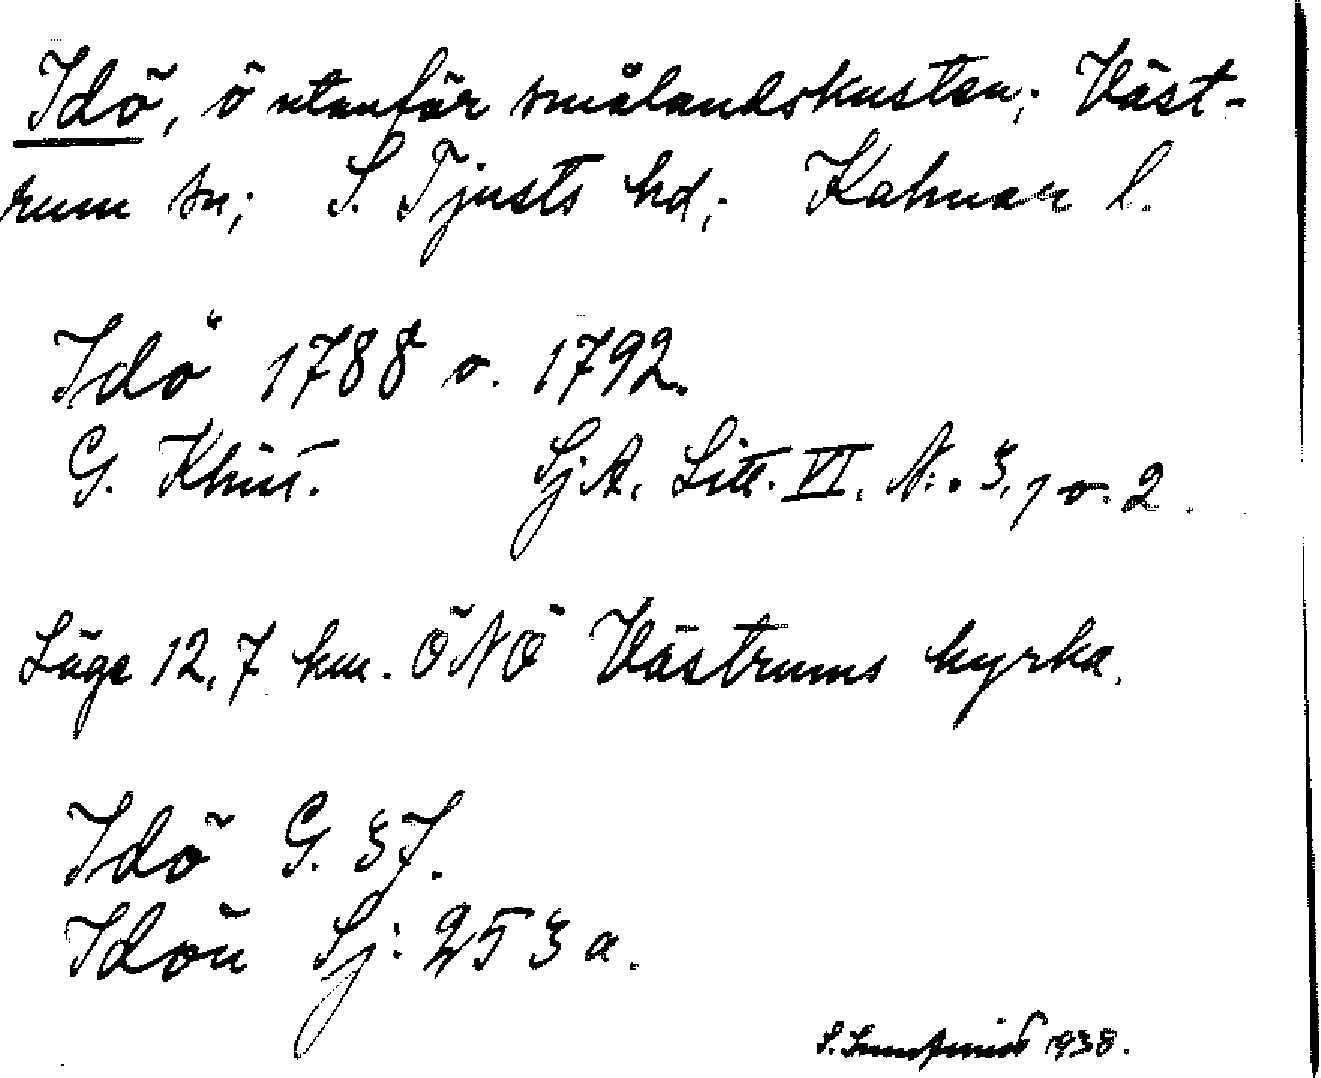 Idö, ö utanför smålandskusten; Väst-
rum sn; S. Tjusts hd; Kalmar l.
Idö 1788 o. 1792.
G. Klint. SjA. Litt. VI. N:o 3, 1 o. 2.
Läge 12,7 km. ÖNÖ Västrums kyrka.
Idö G. 37.
Idön Sj: 253 a.
S. 1938.